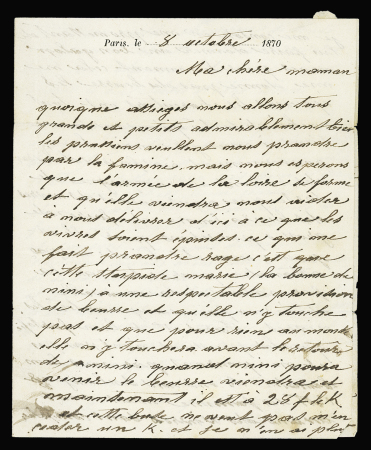 Paris, le 8 octobre 1870
Ma chère maman
quoique assieges nous allons tous
grands et petits admirablement bien
les prussiens veullent nous prandre
par la famine, mais nous esperons
que l'armée de la loire se forme
et qu'elle viendra nous aider
a nous delivrer d'ici à ce que les
vivres soient épuisés. ce qui me
fait prandre rage c'est que
cette stupide marie (la bonne de
mini) à une respectable provision
de beurre et qu'elle n'y touche
pas et que pour rien au monde
elle n'y touchera avant le retour
de mini quand mini poura
venir le beurre viendra et
maintenant il est à 28 f le K
et cette bute ne veut pas m'en
ceder un K et je n'en ai plus